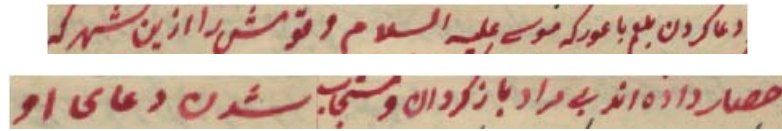 دعا کردن بلعم باعور که موسے علیه السلام و قومش را ازین شهر که
حصار داده اند بے مراد باز کردان و مستجاب شدن دعای او